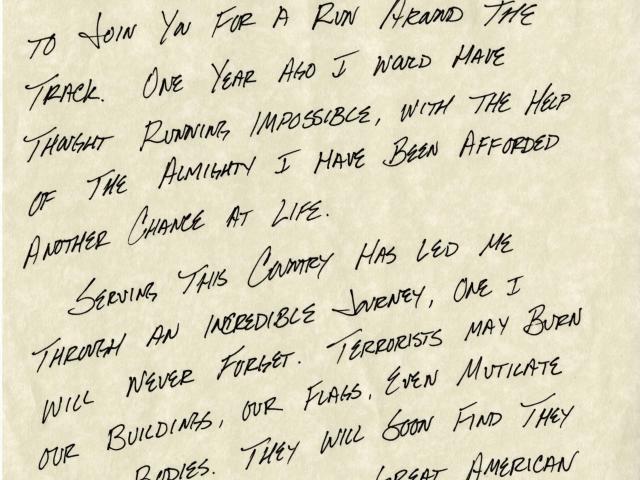 TO JOIN YOU FOR A RUN AROUND THE
TRACK. ONE YEAR AGO I WOULD HAVE
THOUGHT RUNNING IMPOSSIBLE, WITH THE HELP
OF THE ALMIGHTY I HAVE BEEN AFFORDED
ANOTHER CHANCE AT LIFE.
SERVING THIS COUNTRY HAS LED ME
THROUGH AN INCREDIBLE JOURNEY, ONE I
WILL NEVER FORGET. TERRORISTS MAY BURN
OUR BUILDINGS, OUR FLAGS, EVEN MUTILATE
BODIES. THEY WILL SOON FIND THEY
GREAT AMERICAN